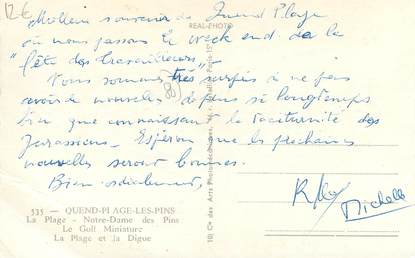 12€
Meilleur souvenir de Quend Plage
REAL-PHOTO
où nous passons le week end de la
"fête des travailleurs".
Nous sommes très surpris de ne pas
avoir de nouvelles depuis si longtemps
bien que connaissant la taciturnité des
Jurassiens. Espérons que les prochaines
nouvelles seront bonnes.
Bien cordialement,
Michelle
535 — QUEND-PLAGE-LES-PINS
La Plage - Notre-Dame des Pins
Le Golf Miniature
La Plage et la Digue